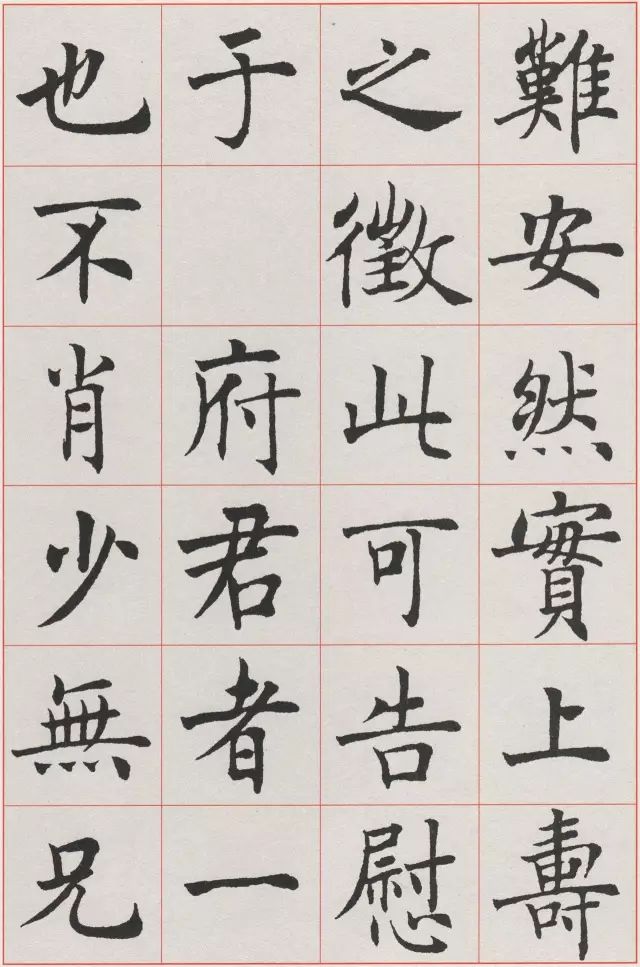 難安然實上壽
之徵此可告慰
于府君者一
也不肖少無兄